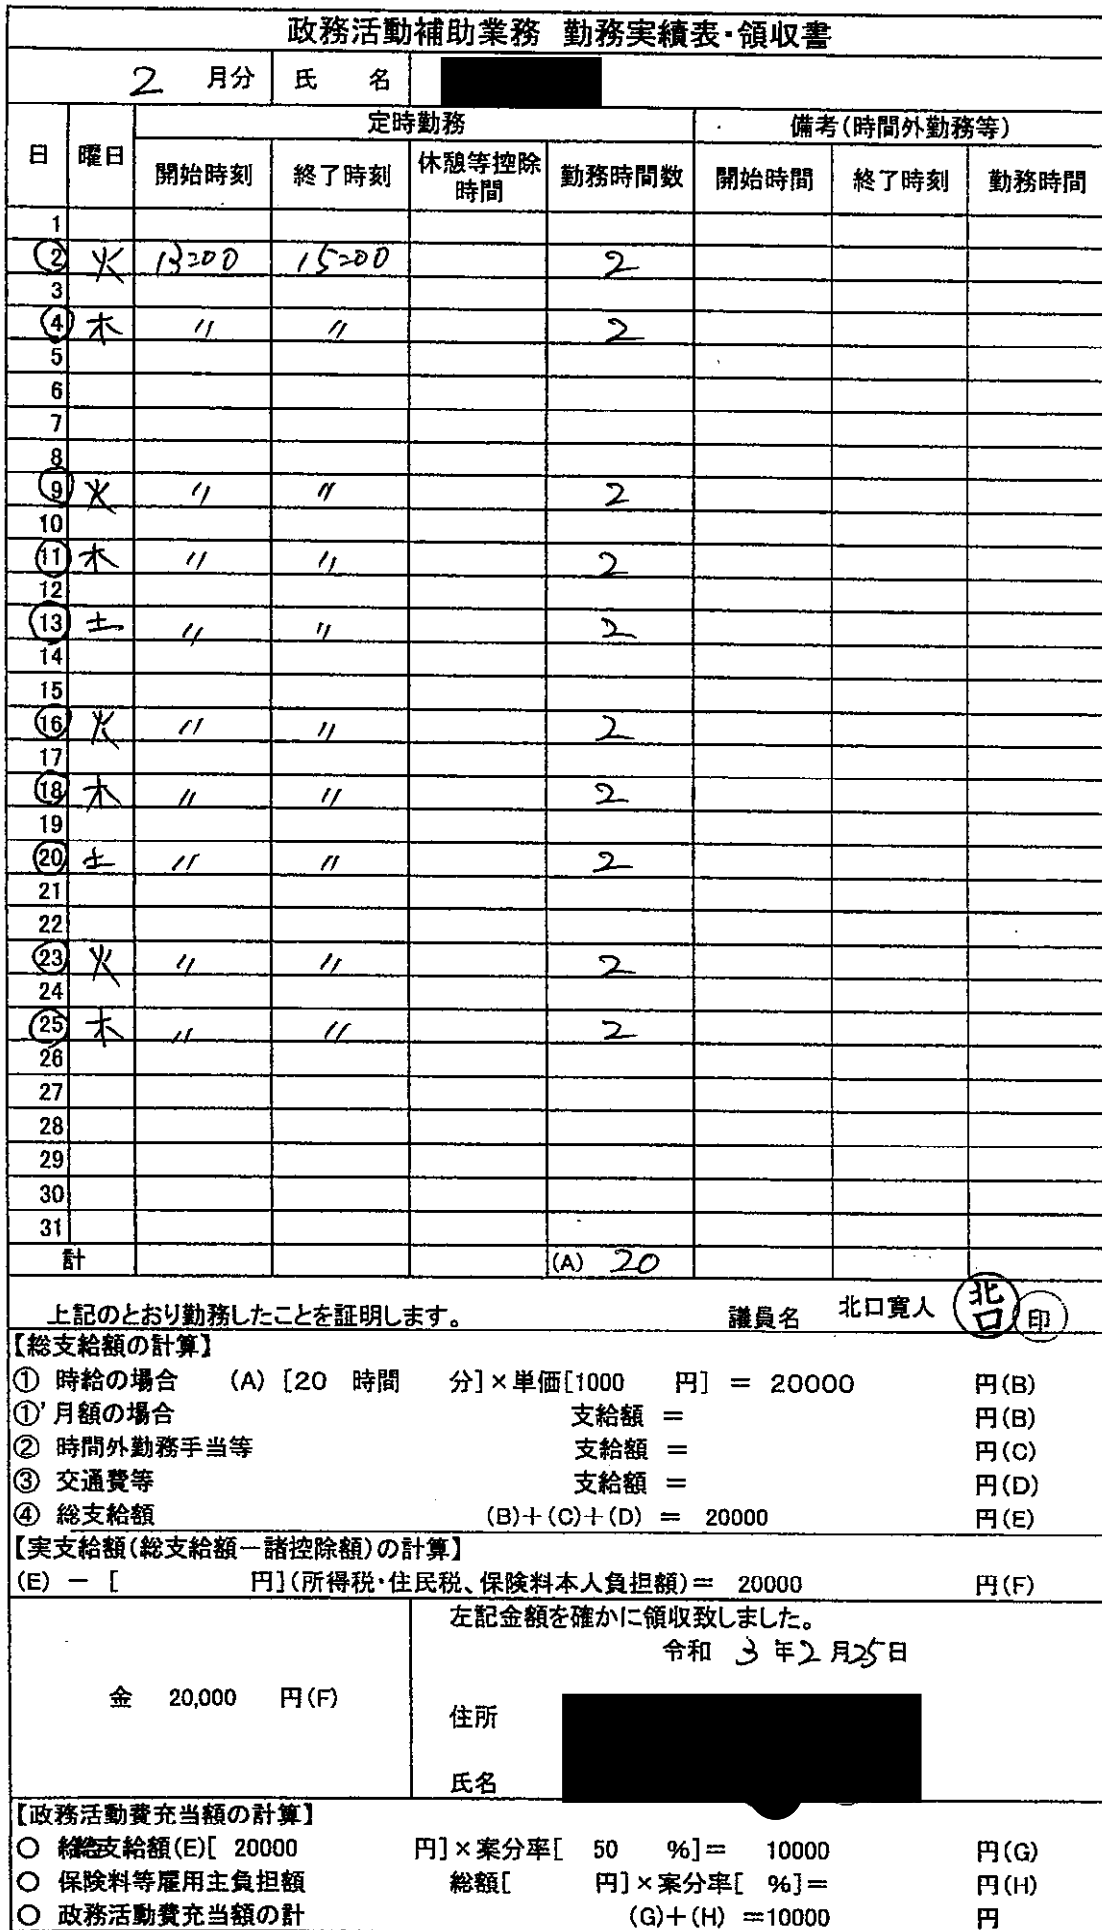 政務活動補助業務 勤務実績表・領収書
2 月分 氏 名
日 曜日 定時勤務 備考(時間外勤務等)
開始時刻 終了時刻 休憩等控除時間 勤務時間数 開始時間 終了時刻 勤務時間
1
② 火 13:00 15:00 2
3
④ 木 〃 〃 2
5
6
7
8
⑨ 火 〃 〃 2
10
⑪ 木 〃 〃 2
12
⑬ 土 〃 〃 2
14
15
⑯ 火 〃 〃 2
17
⑱ 木 〃 〃 2
19
⑳ 土 〃 〃 2
21
22
㉓ 火 〃 〃 2
24
㉕ 木 〃 〃 2
26
27
28
29
30
31
計 (A) 20
上記のとおり勤務したことを証明します。 議員名 北口寛人 北口 印
【総支給額の計算】
① 時給の場合 (A) [20 時間 分]×単価[1000 円] = 20000 円(B)
①' 月額の場合 支給額 = 円(B)
② 時間外勤務手当等 支給額 = 円(C)
③ 交通費等 支給額 = 円(D)
④ 総支給額 (B)+(C)+(D) = 20000 円(E)
【実支給額(総支給額-諸控除額)の計算】
(E) - [ 円](所得税・住民税、保険料本人負担額)= 20000 円(F)
左記金額を確かに領収致しました。
令和 3 年 2 月 25 日
金 20,000 円(F)
住所
氏名
【政務活動費充当額の計算】
○ 総支給額(E)[ 20000 円]×案分率[ 50 %]= 10000 円(G)
○ 保険料等雇用主負担額 総額[ 円]×案分率[ %]= 円(H)
○ 政務活動費充当額の計 (G)+(H) =10000 円